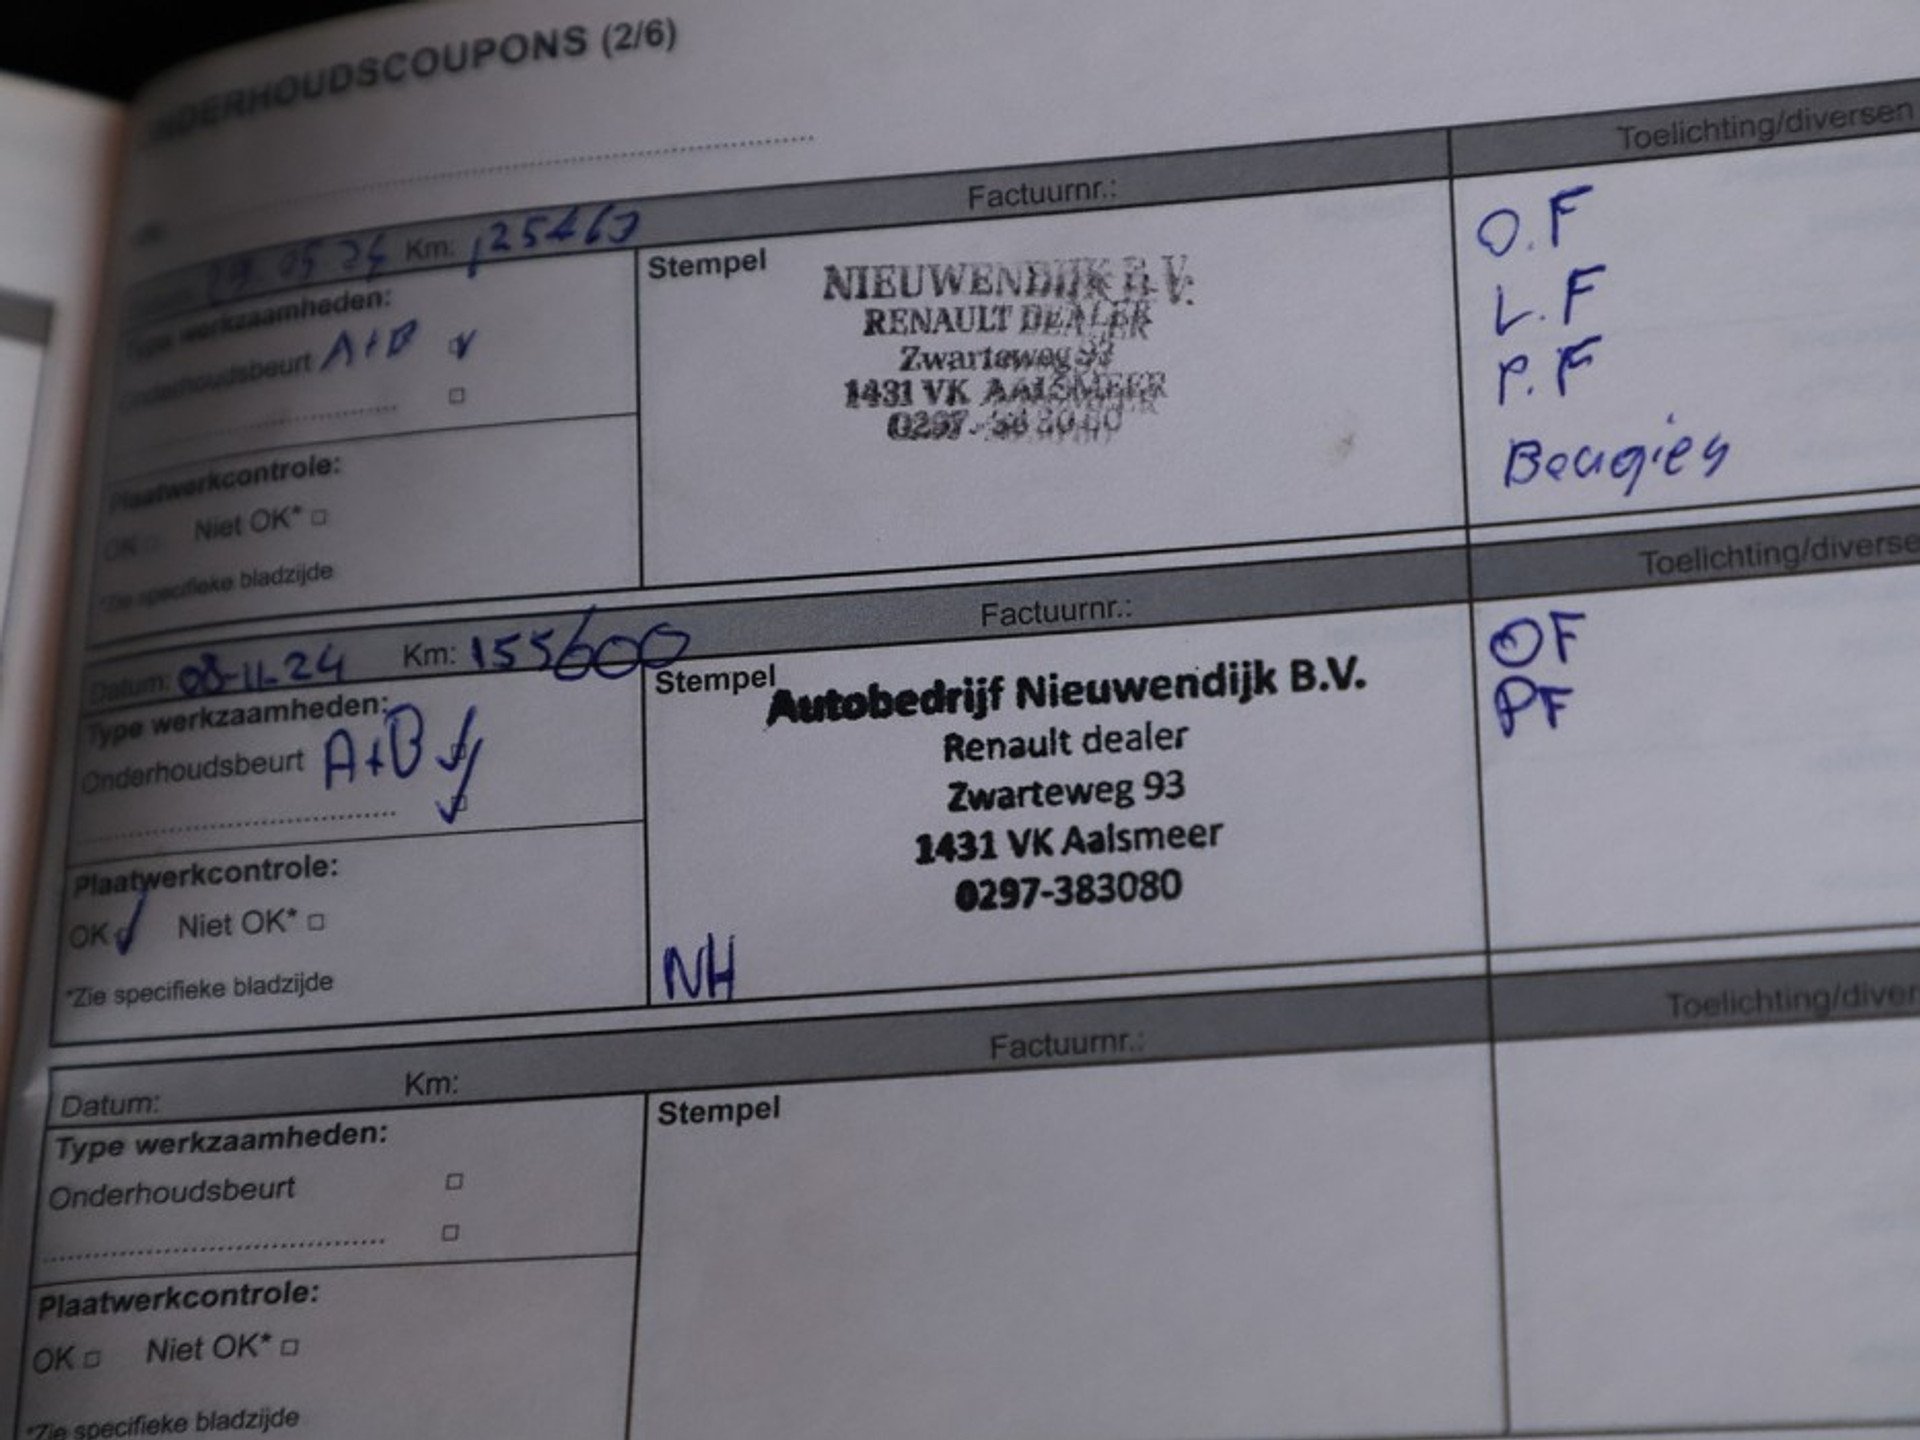 ONDERHOUDSCOUPONS (2/6)
Factuurnr.: Toelichting/diversen
Km:
Type werkzaamheden:
Onderhoudsbeurt A+B
Stempel
NIEUWENDIJK B.V.
RENAULT DEALER
Zwarteweg 93
1431 VK AALSMEER
O.F
L.F
P.F
Bougies
Plaatwerkcontrole:
OK Niet OK*
*Zie specifieke bladzijde
Datum: 08-11-24 Km: 155600 Factuurnr.: Toelichting/diverse
Type werkzaamheden:
Onderhoudsbeurt A+B
Stempel
Autobedrijf Nieuwendijk B.V.
Renault dealer
Zwarteweg 93
1431 VK Aalsmeer
0297-383080
NH
OF
PF
Plaatwerkcontrole:
OK Niet OK*
*Zie specifieke bladzijde
Datum: Km: Factuurnr.: Toelichting/diver
Type werkzaamheden:
Onderhoudsbeurt
Stempel
Plaatwerkcontrole:
OK Niet OK*
*Zie specifieke bladzijde